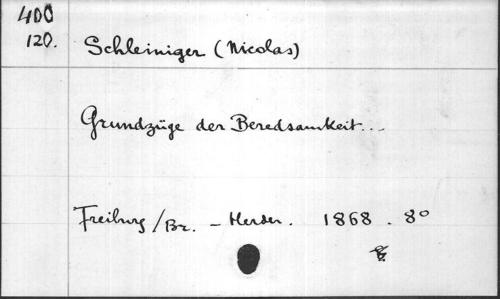 400
120.
Schleiniger (Nicolas)
Grundzüge der Beredsamkeit...
Freiburg / Br. - Herder. 1868. 8°